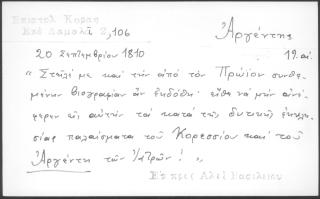 Ἐπιστολ Κοραῆ
Ἐκδ Δαμαλᾶ 2, 106
Ἀργέντης
20 Σεπτεμβρίου 1810
19. αἰ.
"Στεῖλέ με καὶ τὴν ἀπὸ τὸν Πρώϊον συνθε-
μένην βιογραφίαν ἂν ἐκδόθη· εἴθε νὰ μὴν ἀνέ-
φερεν εἰς αὐτὴν τὰ κατὰ τῆς δυτικῆς ἐκκλη-
σίας παλαίσματα τοῦ Κορεσσίου καὶ τοῦ
Ἀργέντη τῶν Ἰατρῶν! "
Ἐκ πρὸς Ἀλεξ Βασιλείου